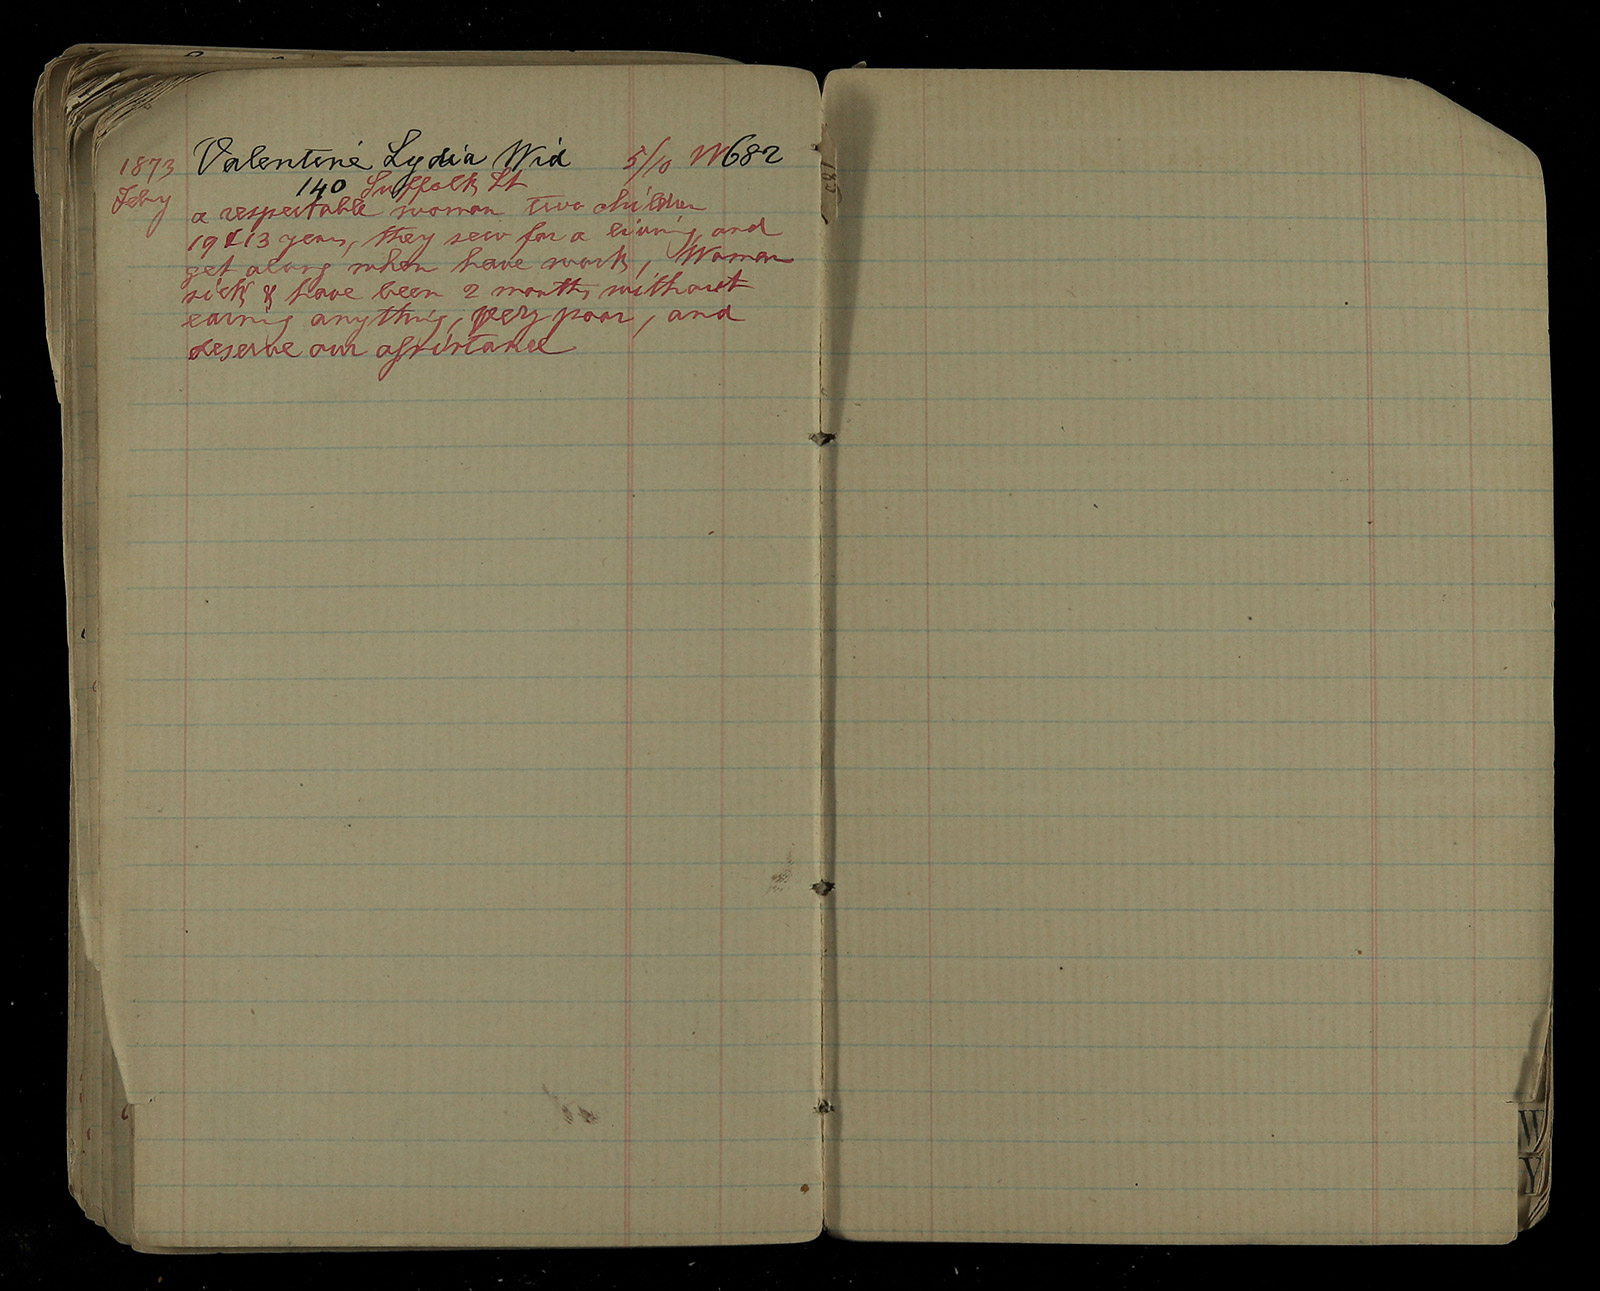 1873 Valentine Lydia Wid 5/10 W682
Feby 140 Suffolk St
a respectable woman two children
19 & 13 years, they sew for a living and
get along when have work, Woman
sick & have been 2 months without
earning anything, very poor, and
deserve our assistance
W
Y